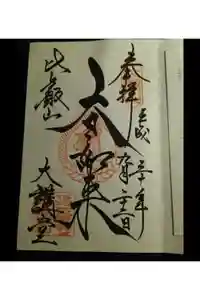 奉拝
平成三十年
九月
大日如来
比叡山
大講堂